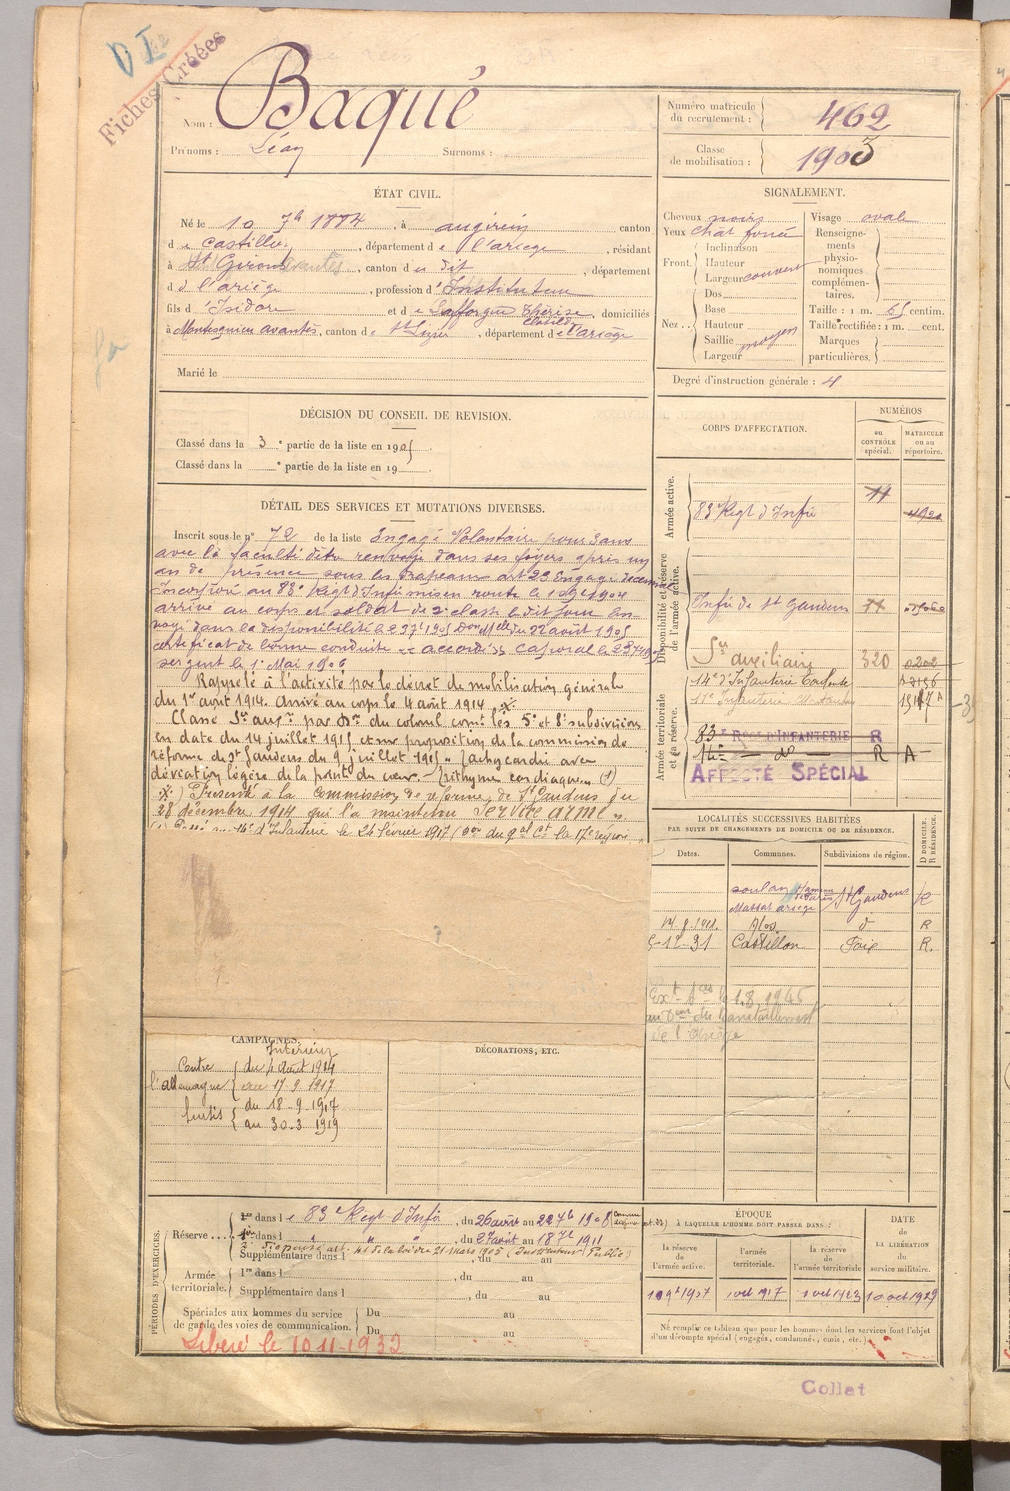 D I
Fiches Créées
Nom : Baqué
Prénoms : Léon Surnoms :
Numéro matricule du recrutement : 462
Classe de mobilisation : 1903
ÉTAT CIVIL.
Né le 10 7b 1884, à augirein canton
de Castillon, département de l'ariège, résidant
à St Girons, canton du dit, département
de l'ariège, profession d'Instituteur
fils d'Isidore et de Lafforgue Thérèse, domiciliés
à Montesquieu avantès, canton de St Lizier, département de l'ariège
Marié le
SIGNALEMENT.
Cheveux noirs
Yeux chât foncé
Front Inclinaison
Hauteur
Largeur couvert
Nez Dos
Base
Hauteur
Saillie
Largeur moyen
Visage oval
Renseignements physionomiques complémentaires.
Taille : 1 m. 65 centim.
Taille rectifiée : 1 m. cent.
Marques particulières.
Degré d'instruction générale : 4
DÉCISION DU CONSEIL DE REVISION.
Classé dans la 3e partie de la liste en 1905.
Classé dans la e partie de la liste en 19
DÉTAIL DES SERVICES ET MUTATIONS DIVERSES.
Inscrit sous le n° 72 de la liste Engagé Volontaire pour 3 ans
avec la faculté d'être renvoyé dans ses foyers après un
an de présence sous les drapeaux art 23 Engagé
Incorporé au 83e Régt d'Infie mis en route le 10 9bre 1904
arrivé au corps et soldat de 2e classe le dit jour
dans la disponibilité le 1905 Don Mlle du 22 août 1905
certificat de bonne conduite accordé Caporal le
sergent le 1er Mai 1906
Rappelé à l'activité par le décret de mobilisation générale
du 1er août 1914. Arrivé au corps le 4 août 1914
Classé Sce auxre par Don du colonel comt les 5e et 8e subdivisions
en date du 14 juillet 1915 et sur proposition de la commission de
réforme de St Gaudens du 9 juillet 1915 « Tachycardie avec
déviation légère de la pointe du cœur. - Arithymie cardiaque » (1)
Présenté à la Commission de réforme de St Gaudens du
28 décembre 1914 qui l'a maintenu Service armé.
(1) Passé au 14e d'Infanterie le 24 février 1917 (Don du gal Ct la 17e région
CORPS D'AFFECTATION.
NUMÉROS
au CONTRÔLE spécial.
MATRICULE ou au répertoire.
Armée active.
83e Régt d'Infie 11
Disponibilité et réserve de l'armée active.
Infie de St Gaudens 11
Sce auxiliaire 320 0202
Armée territoriale et sa réserve.
14e d'Infanterie Toulouse
83e RÉGT D'INFANTERIE R
14e do R A
AFFECTÉ SPÉCIAL
LOCALITÉS SUCCESSIVES HABITÉES
PAR SUITE DE CHANGEMENTS DE DOMICILE OU DE RÉSIDENCE.
Dates. Communes. Subdivisions de région. D DOMICILE. R RÉSIDENCE.
Soulan
Massat ariège St Gaudens R
Alos d R
5-12-31 Castillon Foix R.
le 1.8.1945
de l'Ariège
CAMPAGNES.
Intérieur
Contre l'allemagne
du 4 Août 1914
au 17 9 1917
du 18-9-1917
au 30-3 1919
DÉCORATIONS, ETC.
PÉRIODES D'EXERCICES.
Réserve
1re dans le 83e Régt d'Infie, du 26 août au 22 7b 1908
2e dans l " " ", du 27 août au 18 7b 1911
Dispensé art. 41 de la loi du 21 mars 1905 (Instituteur Public)
Supplémentaire dans l , du au
Armée territoriale.
1re dans l , du au
Supplémentaire dans l , du au
Spéciales aux hommes du service de garde des voies de communication.
Du au
Du au
Libéré le 10-11-1932
ÉPOQUE
À LAQUELLE L'HOMME DOIT PASSER DANS :
la réserve de l'armée active.
l'armée territoriale.
la réserve de l'armée territoriale
DATE de LA LIBÉRATION du service militaire.
1 oct 1917
10 oct 1929
Ne remplir ce tableau que pour les hommes dont les services font l'objet
d'un décompte spécial (engagés, condamnés, omis, etc.)
Collat